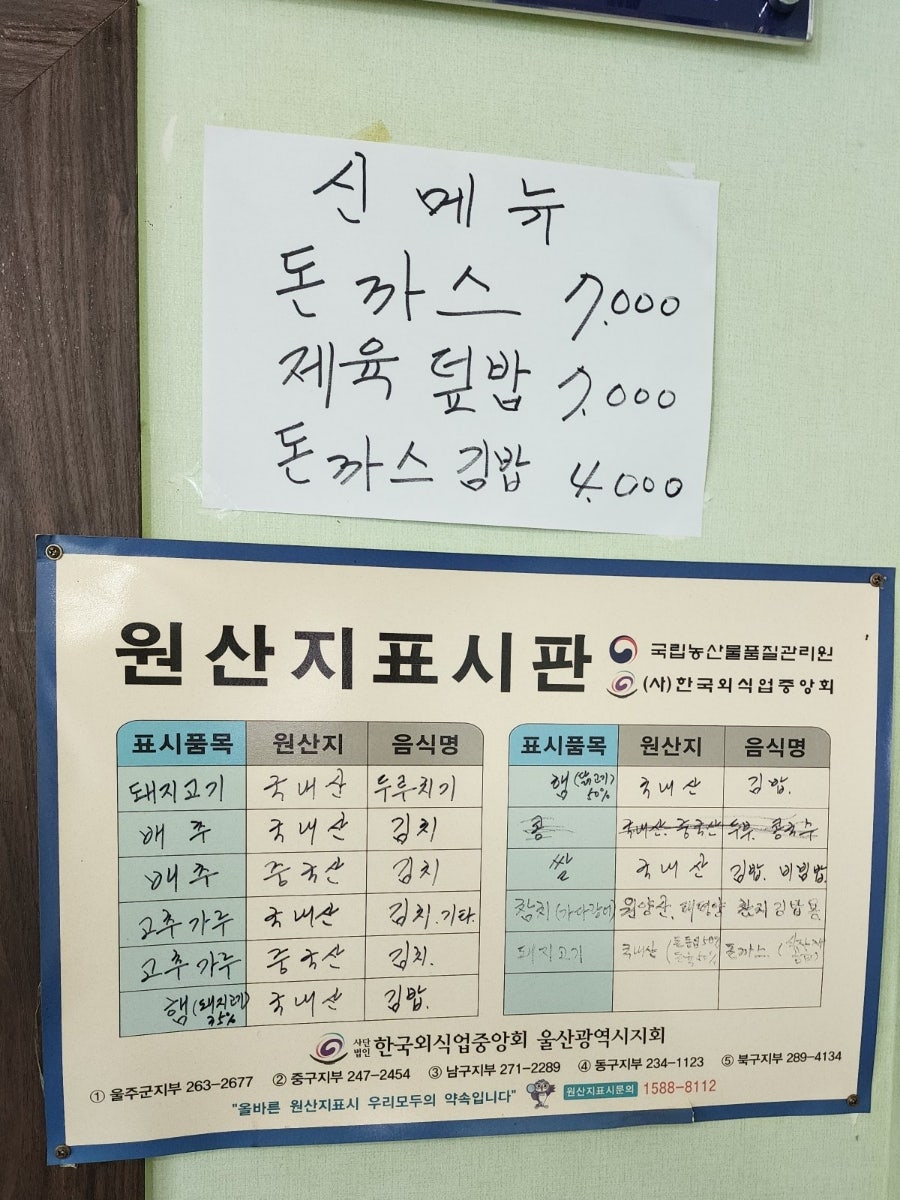 신 메 뉴
돈 까 스 7.000
제육 덮밥 7.000
돈까스 김밥 4.000
원산지표시판
국립농산물품질관리원
(사)한국외식업중앙회
표시품목 원산지 음식명
돼지고기 국내산 두루치기
배 추 국내산 김치
배 추 중국산 김치
고추가루 국내산 김치.기타.
고추가루 중국산 김치.
햄(돼지고기 35% 국내산 김밥.
표시품목 원산지 음식명
햄 50% 국내산 김밥.
콩 국내산. 중국산 두부. 콩국수
쌀 국내산 김밥. 비빔밥
참치(가다랑어) 원양산, 태평양 참치김밥용
돼지고기 국내산 돈까스
사단법인 한국외식업중앙회 울산광역시지회
① 울주군지부 263-2677 ② 중구지부 247-2454 ③ 남구지부 271-2289 ④ 동구지부 234-1123 ⑤ 북구지부 289-4134
"올바른 원산지표시 우리모두의 약속입니다" 원산지표시문의 1588-8112